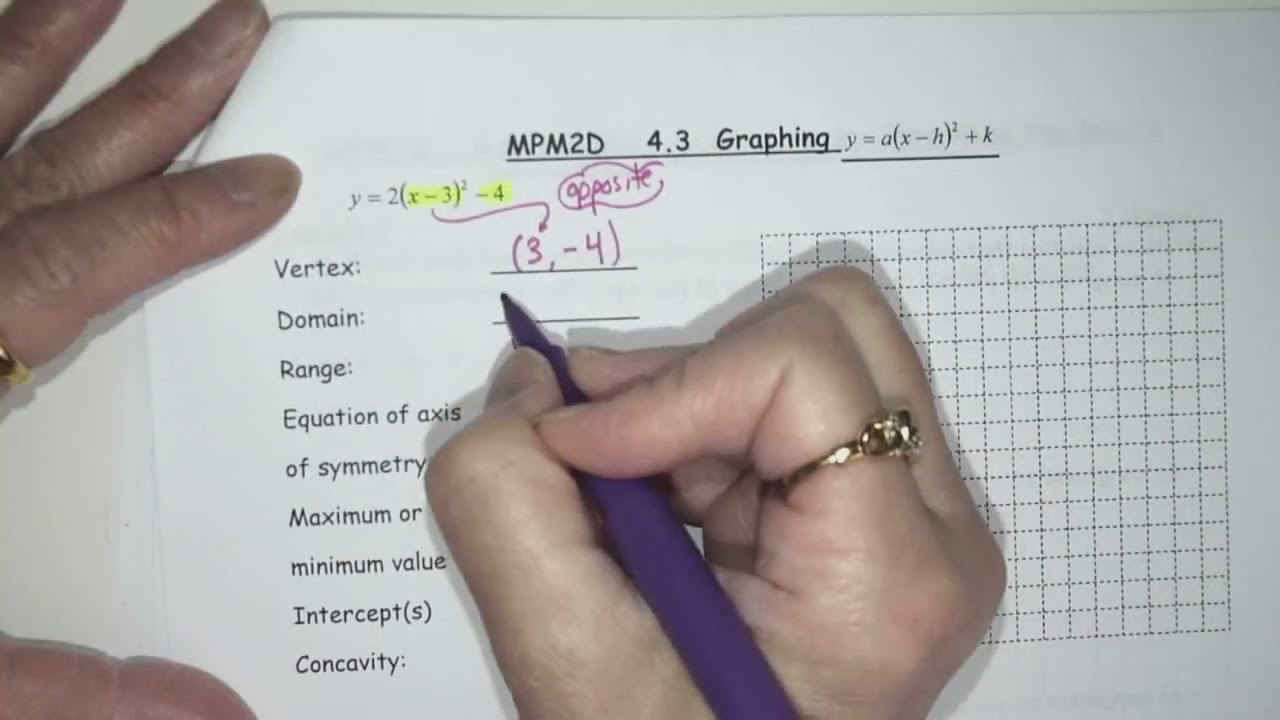 MPM2D 4.3 Graphing y = a(x – h)² + k
y = 2(x – 3)² – 4
opposite
Vertex: (3, -4)
Domain:
Range:
Equation of axis
of symmetry
Maximum or
minimum value
Intercept(s)
Concavity: